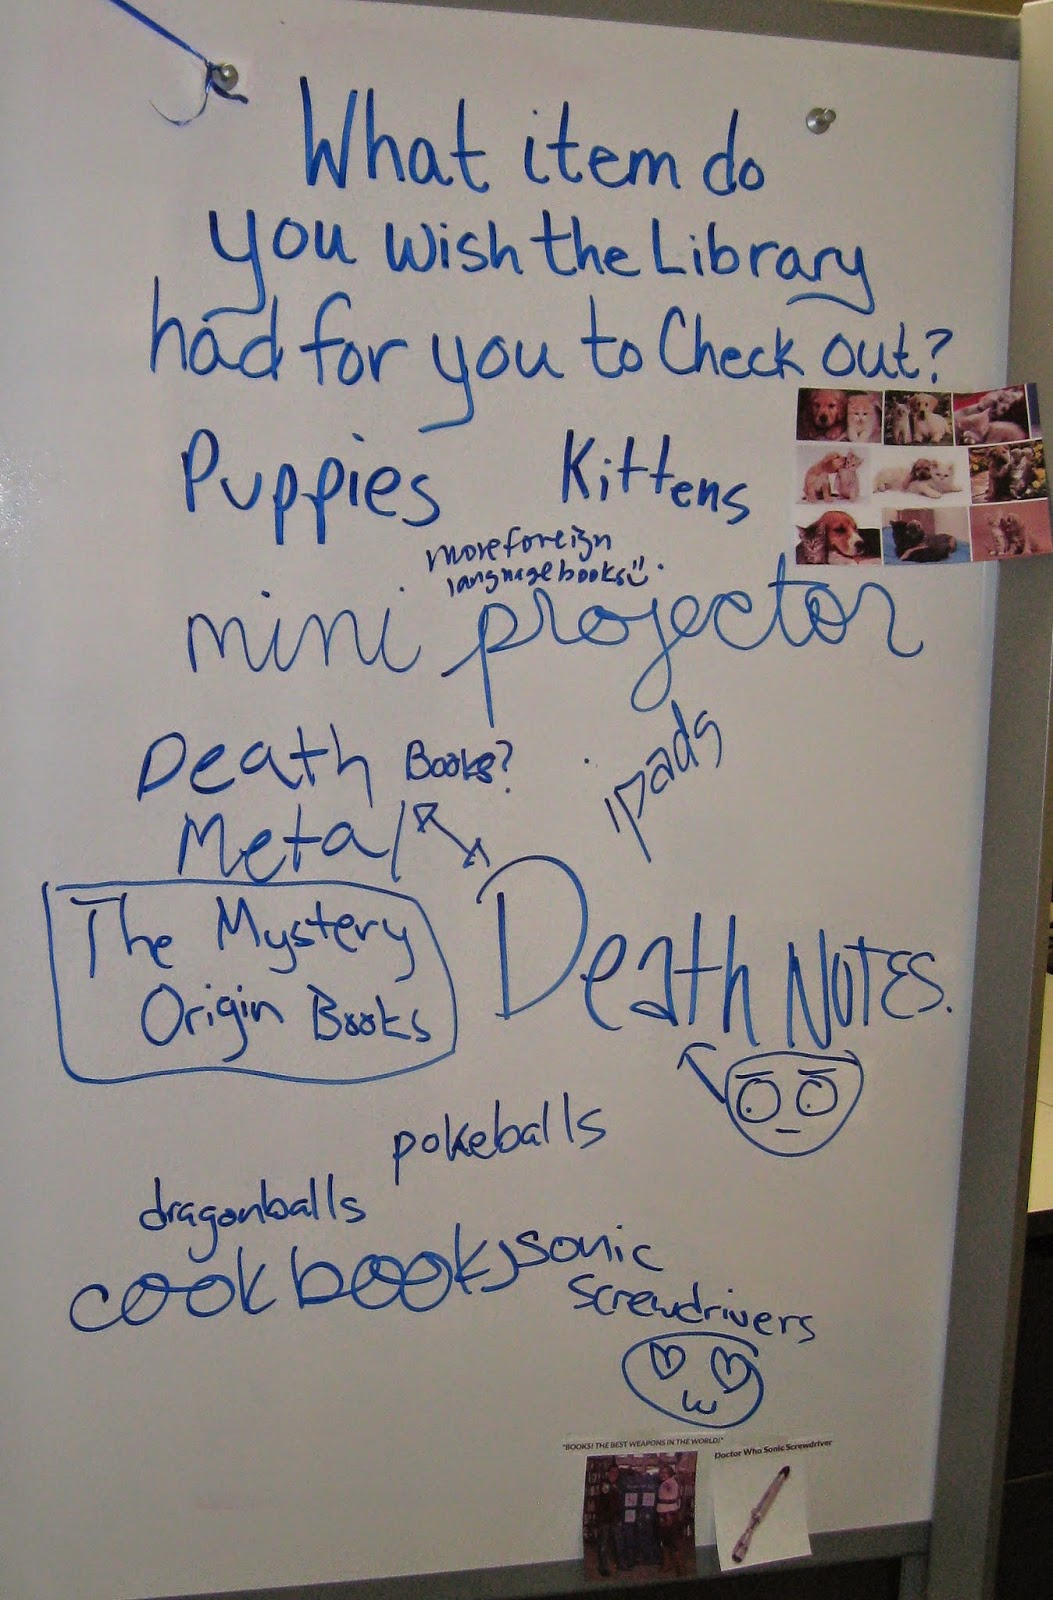 What item do
you wish the Library
had for you to Check out?
Puppies Kittens
more foreign
language books
mini projector
Death Books?
ipads
Metal
The Mystery
Origin Books
Death NOTES.
pokeballs
dragonballs
cookbooks
sonic
screwdrivers
"BOOKS! THE BEST WEAPONS IN THE WORLD!"
Doctor Who Sonic Screwdriver